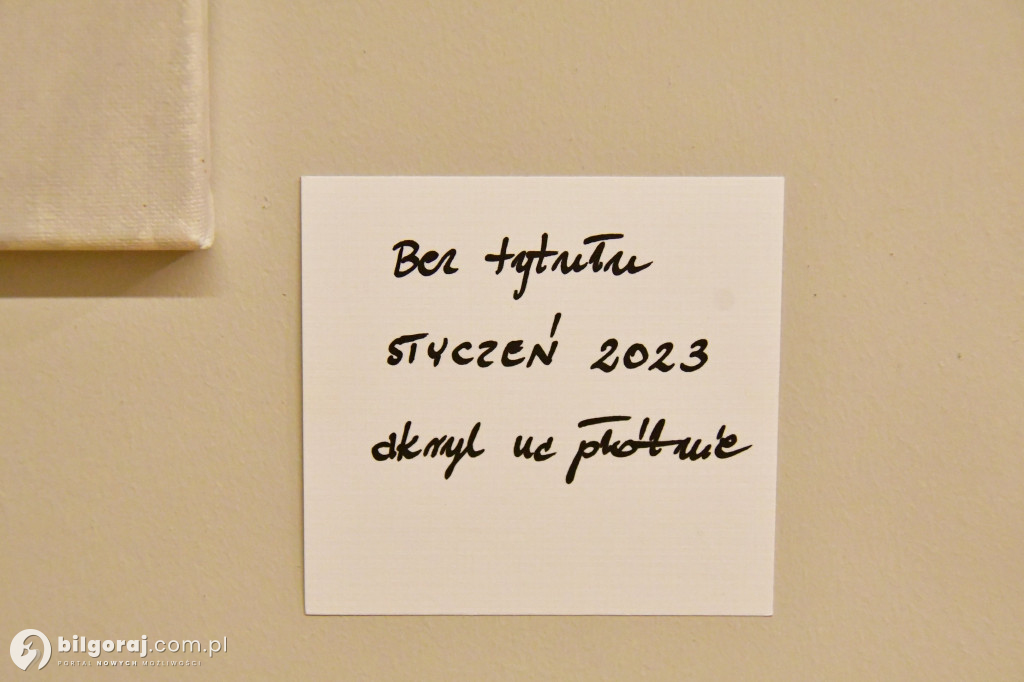 Bez tytułu
STYCZEŃ 2023
akryl na płótnie
bilgoraj.com.pl
PORTAL NOWYCH MOŻLIWOŚCI